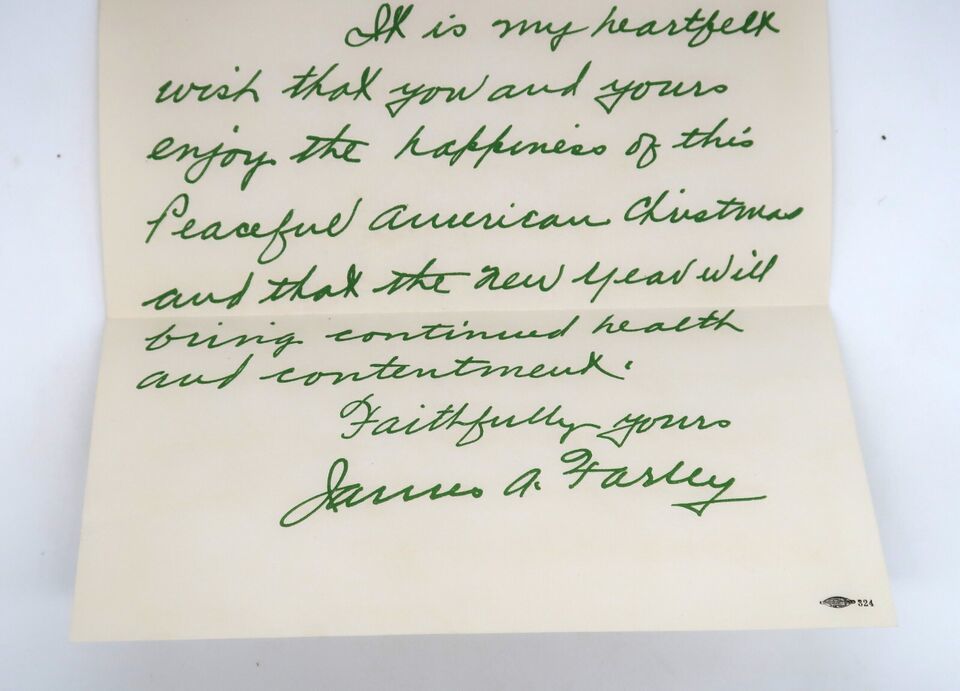 It is my heartfelt
wish that you and yours
enjoy the happiness of this
Peaceful American Christmas
and that the new year will
bring continued health
and contentment.
Faithfully yours
James A. Farley
324